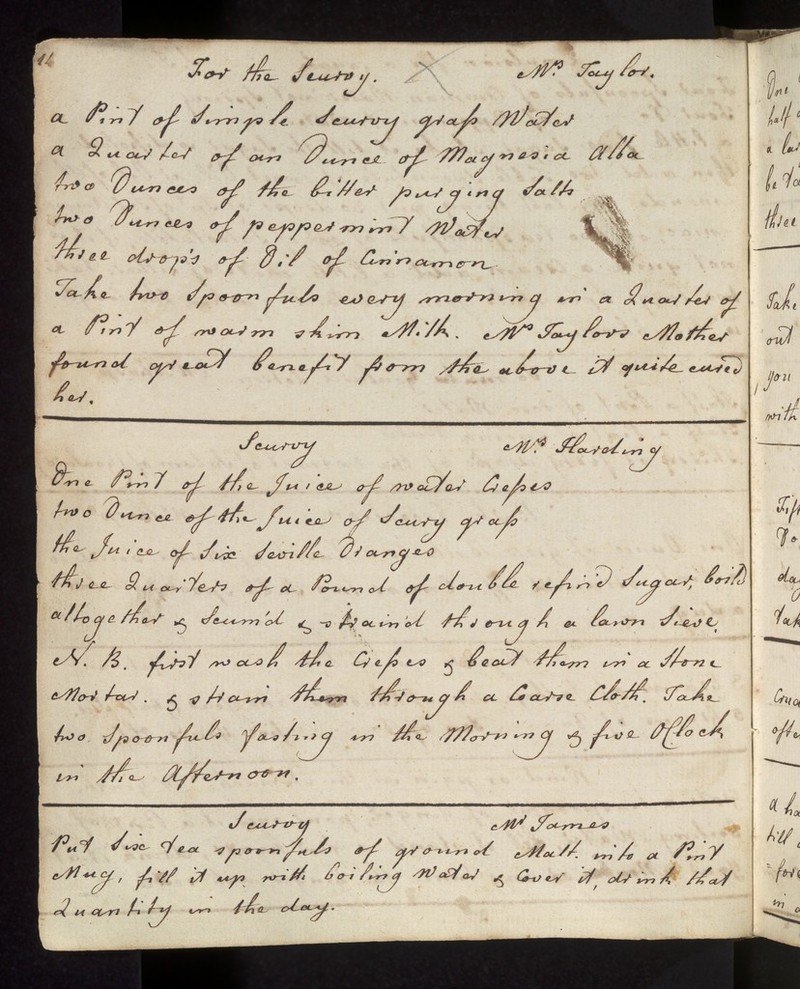 14
For the Scurvy. Mrs Taylor.
a Pint of Simple Scurvy grass Water
a Quarter of an Ounce of Magnesia Alba
two Ounces of the bitter purging Salts
two Ounces of peppermint Water
three drops of Oil of Cinnamon
Take two Spoonfuls every morning in a Quarter of
a Pint of warm skim Milk. Mrs Taylors Mother
found great benefit from the above it quite cured
her.
Scurvy Mrs Harding
One Pint of the Juice of water Cresses
two Ounce of the Juice of Scury grass
the Juice of Six Seville Oranges
three Quarters of a Pound of double refin'd Sugar, boil'd
altogether & Scum'd & strain'd through a lawn Sieve.
N. B. first wash the Cresses & beat them in a Stone
Mortar. & strain them through a Coarse Cloth. Take
two Spoonfuls fasting in the Morning & five OClock
in the Afternoon.
Scurvy Mr James
Put Six Tea spoonfuls of ground Malt. into a Pint
Mug, fill it up with boiling Water & Cover it, drink that
Quantity in the day.
One
half
be
three
Take
out
you
with